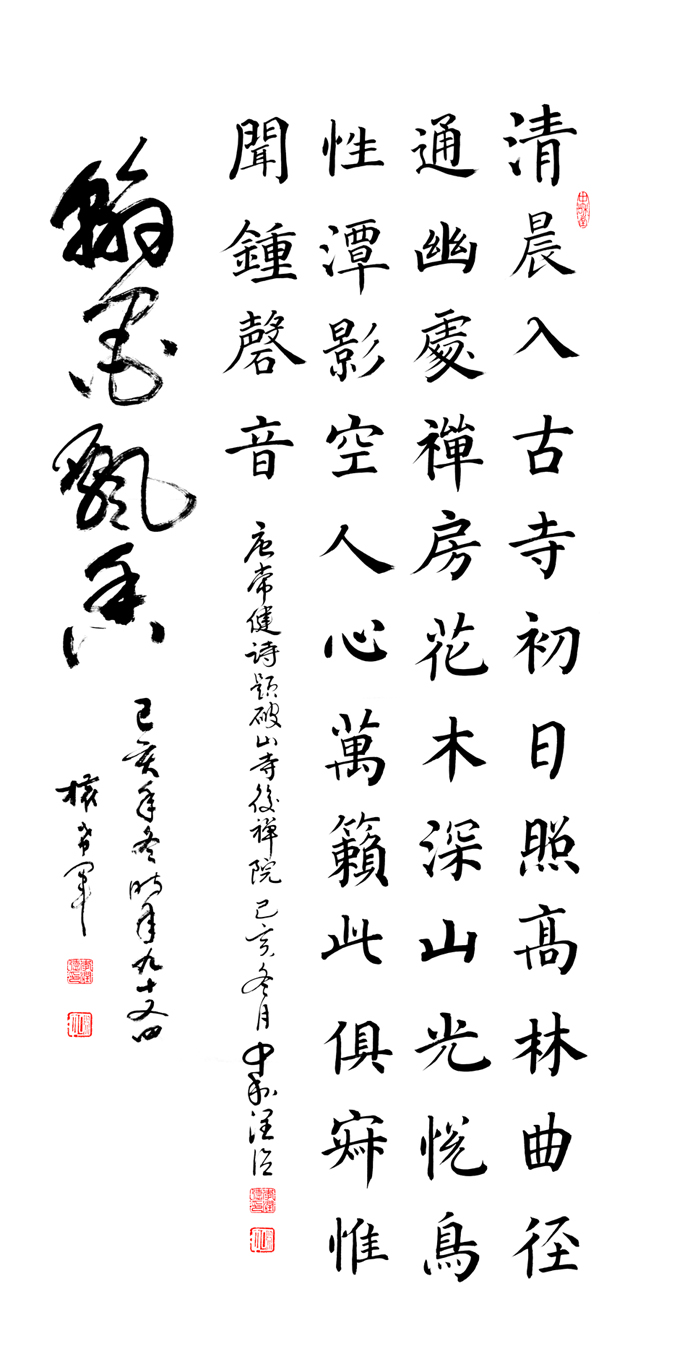 清晨入古寺初日照高林曲径
通幽處禪房花木深山光悦鳥
性潭影空人心萬籟此俱寂惟
聞鍾磬音
唐常健诗题破山寺後禅院己亥冬月
翰墨飘香
己亥年冬时年九十又四